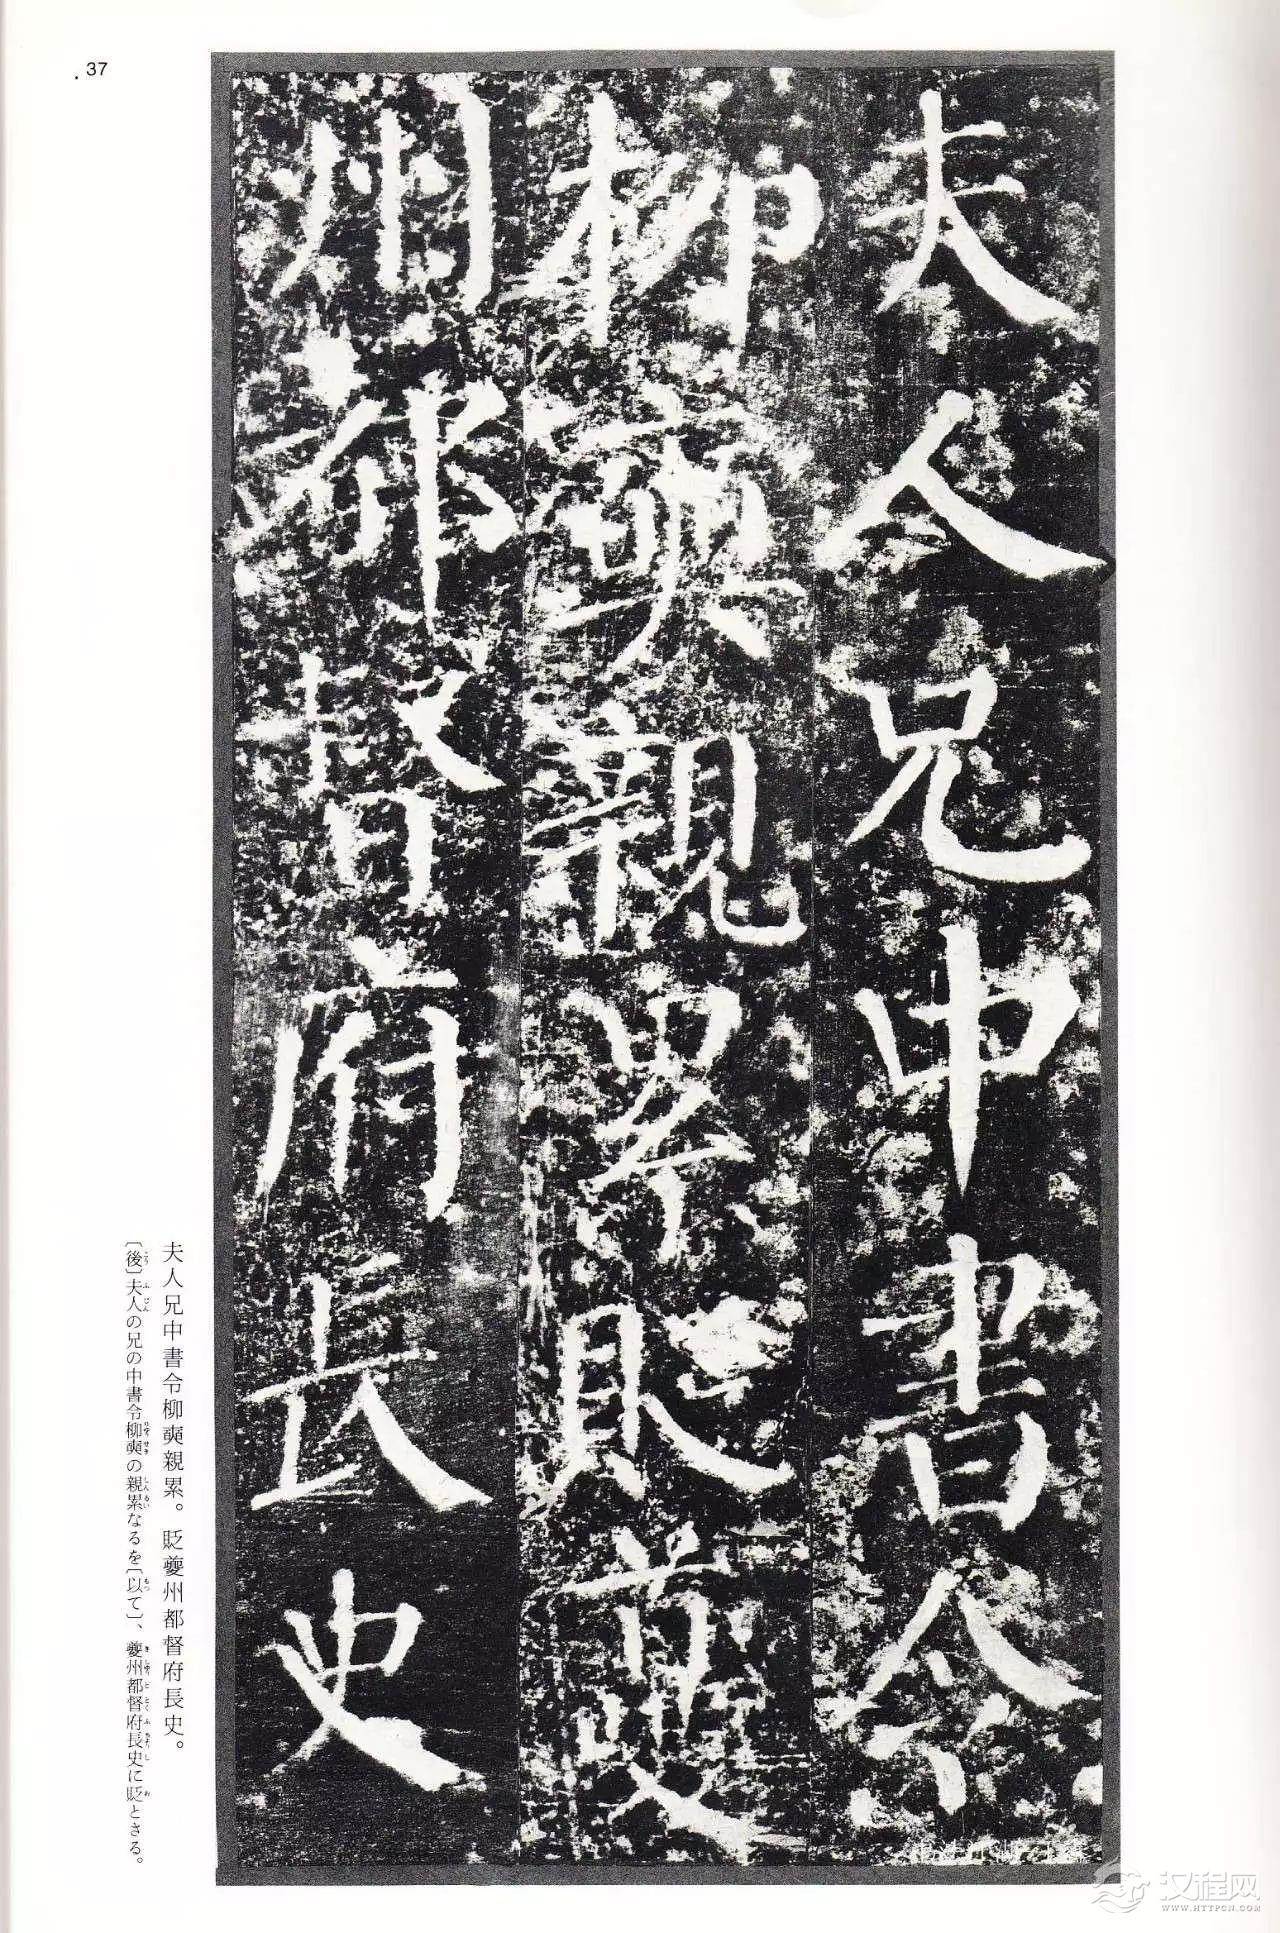 37
夫人兄中書令
柳奭親累貶夔
州都督府長史
夫人兄中書令柳奭親累。貶夔州都督府長史。
〔後〕夫人の兄の中書令柳奭の親累なるを〔以て〕、夔州都督府長史に貶とさる。
汉程网
WWW.HTTPCN.COM